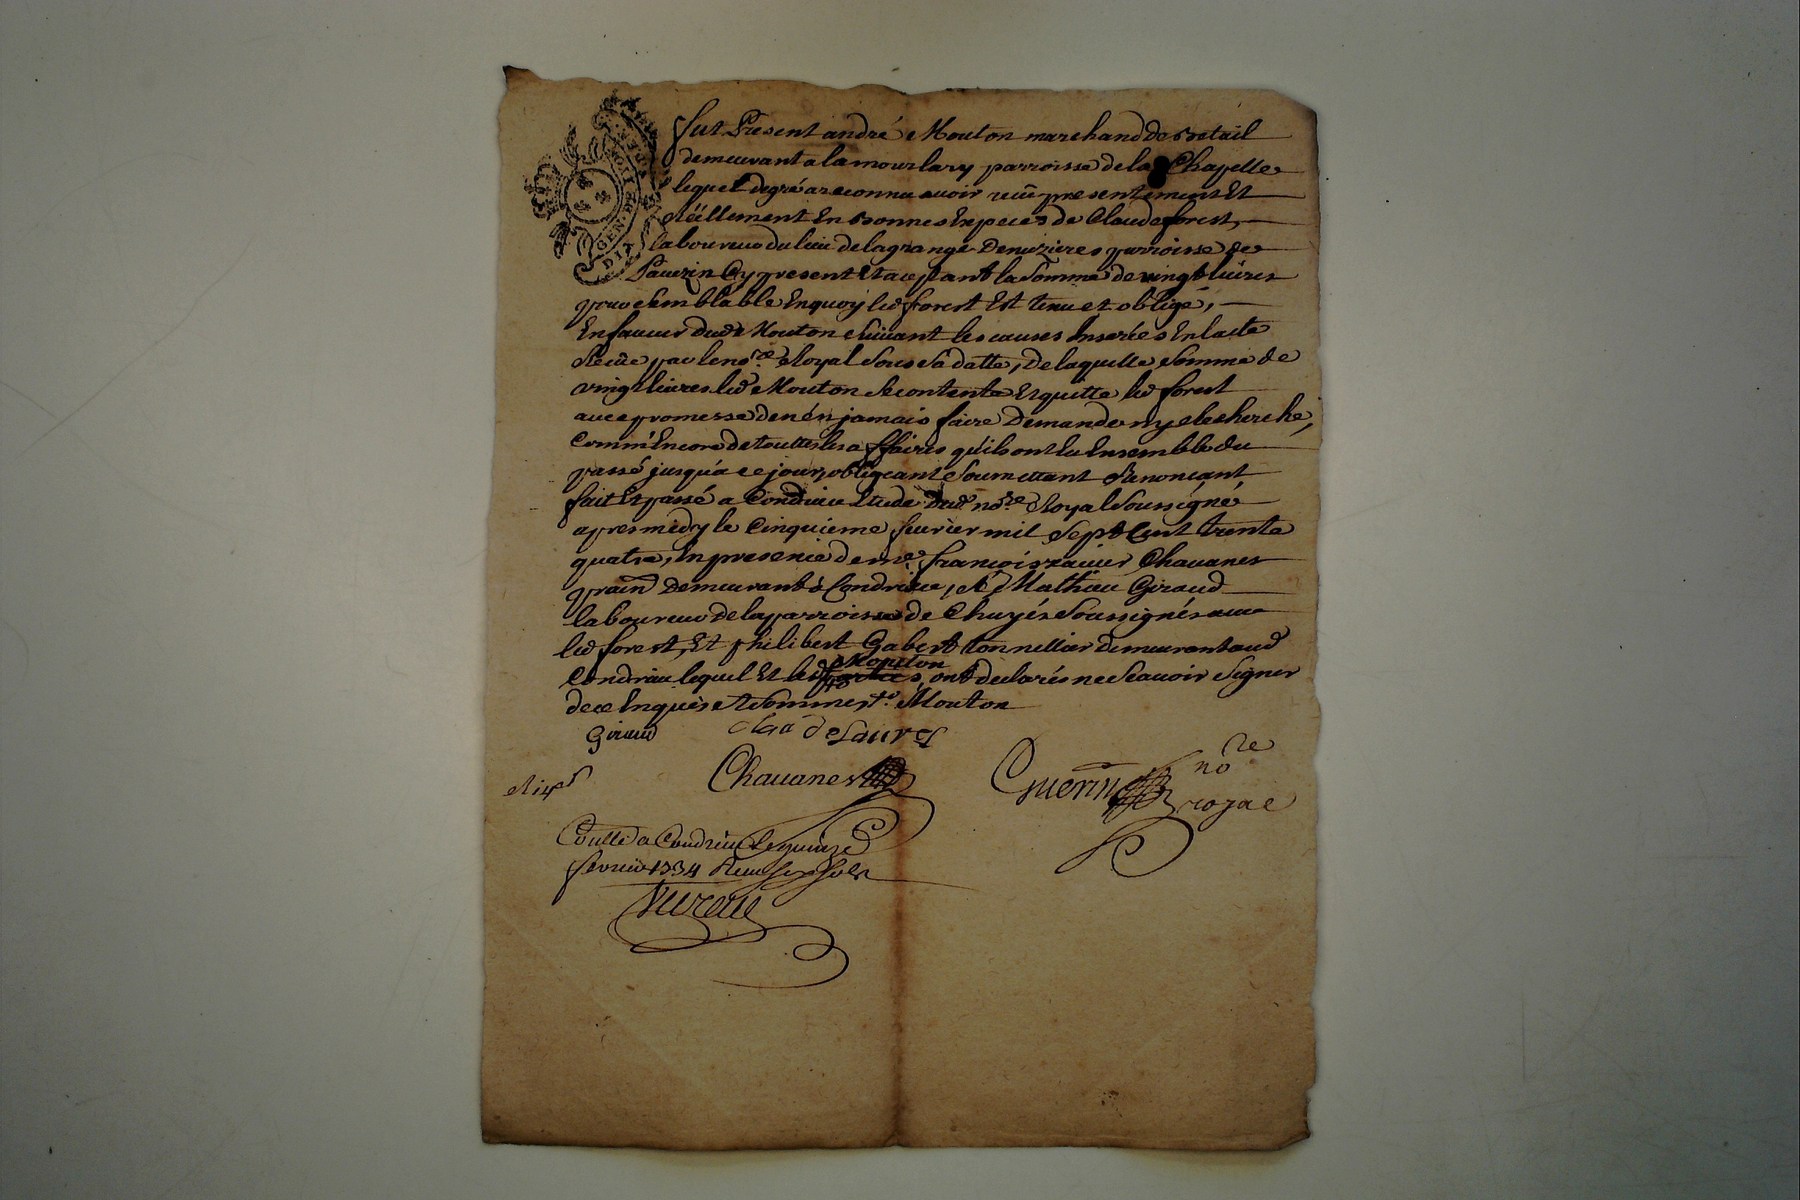 GEN. DE LYON
DIX
fut Present andré Mouton marchand de betail
demeurant a la mourlary parroisse de la Chapelle
lequel de gré a reconnu avoir reçu presentement Et
Reëllement En bonnes Especes de Claude forest,
laboureur du lieu de la grange Denuzieres parroisse de
Pavezin Cy present Et aceptant la Somme de vingt livres
pour semblable En quoy led forest Est tenu et obligé,
En faveur dud Mouton Suivant les causes Inserées En l'acte
Reçue par le no.re Royal Sous Sa datte, De laquelle Somme de
vingt livres led Mouton Se contente Et quitte led forest
avec promesse de n'en jamais faire Demande ny Recherche,
Comm'Encore de touttes les affaires qu'ils ont Eu Ensemble du
passé jusqu'a ce jour, obligeant Soumettant Renonçant
fait Et passé a Condrieu Etude dud no.re Royal Soussigné
apres midy le Cinquieme fevrier mil Sept Cent trente
quatre, En presence de me. francois xavier Chavanes
prain Demeurant a Condrieu, Mathieu Giraud
laboureur de la parroisse de Chuyés Soussignés avec
led forest, Et philibert Gabert tonnellier demeurant aud
Mouton
Condrieu lequel Et led parties, ont declarés ne Scavoir Signer
de ce Enquis et Sommes Mouton
Giraud
Chavanes
Guerin no.re royal
Conlle a Condrieu le quinze
fevrier 1734 Reçu Six Sols